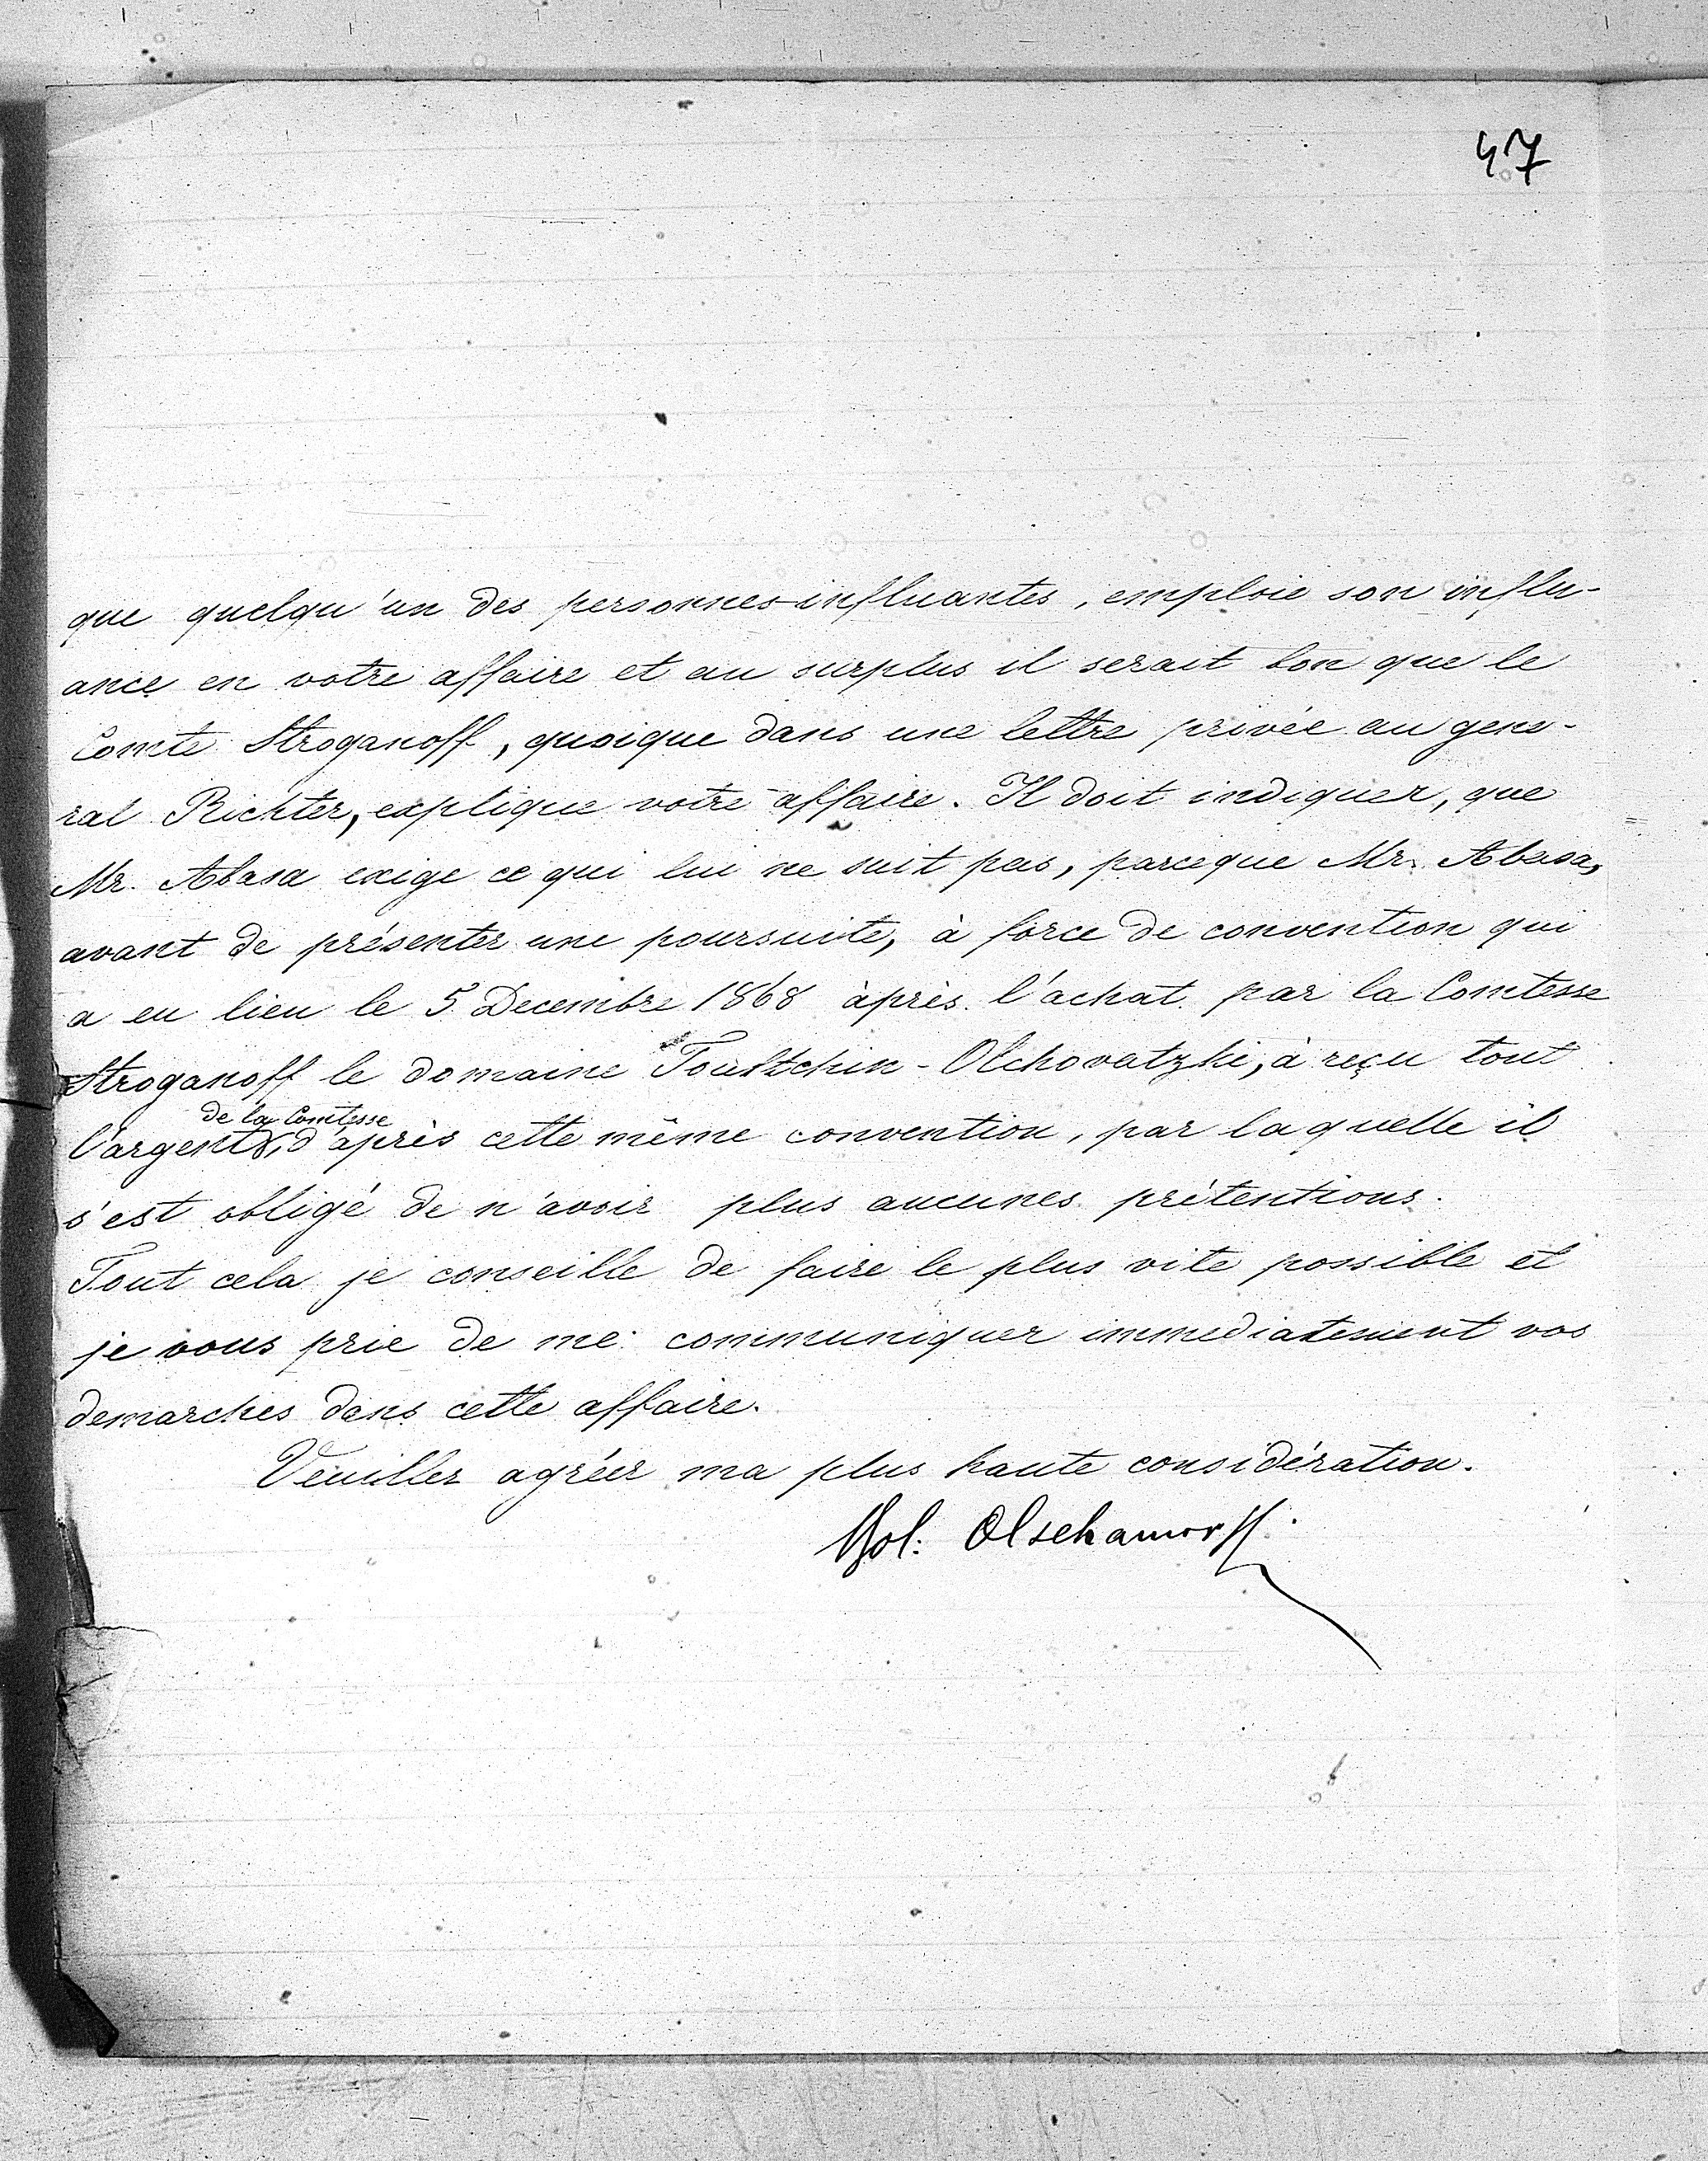 47
que quelqu'un des personnes influantes, emploie son influ-
ance en votre affaire et au surplus il serait bon que le
Comte Stroganoff, quoique dans une lettre privée au gene-
ral Richter, explique votre affaire. Il doit indiquer, que
Mr. Abasa exige ce qui lui ne suit pas, parceque Mr. Abasa,
avant de présenter une poursuite, à force de convention qui
a eu lieu le 5 Decembre 1868 àprès l'achat par la Comtesse
Stroganoff le domaine Toultchin-Olchovatzki, à reçu tout
de la Comtesse
l'argent, d'àprès cette même convention, par laquelle il
s'est obligé de n'avoir plus aucunes prétentions.
Tout cela je conseille de faire le plus vite possible et
je vous prie de me communiquer immediatement vos
demarches dans cette affaire.
Veuillez agréer ma plus haute considération.
Olschamow